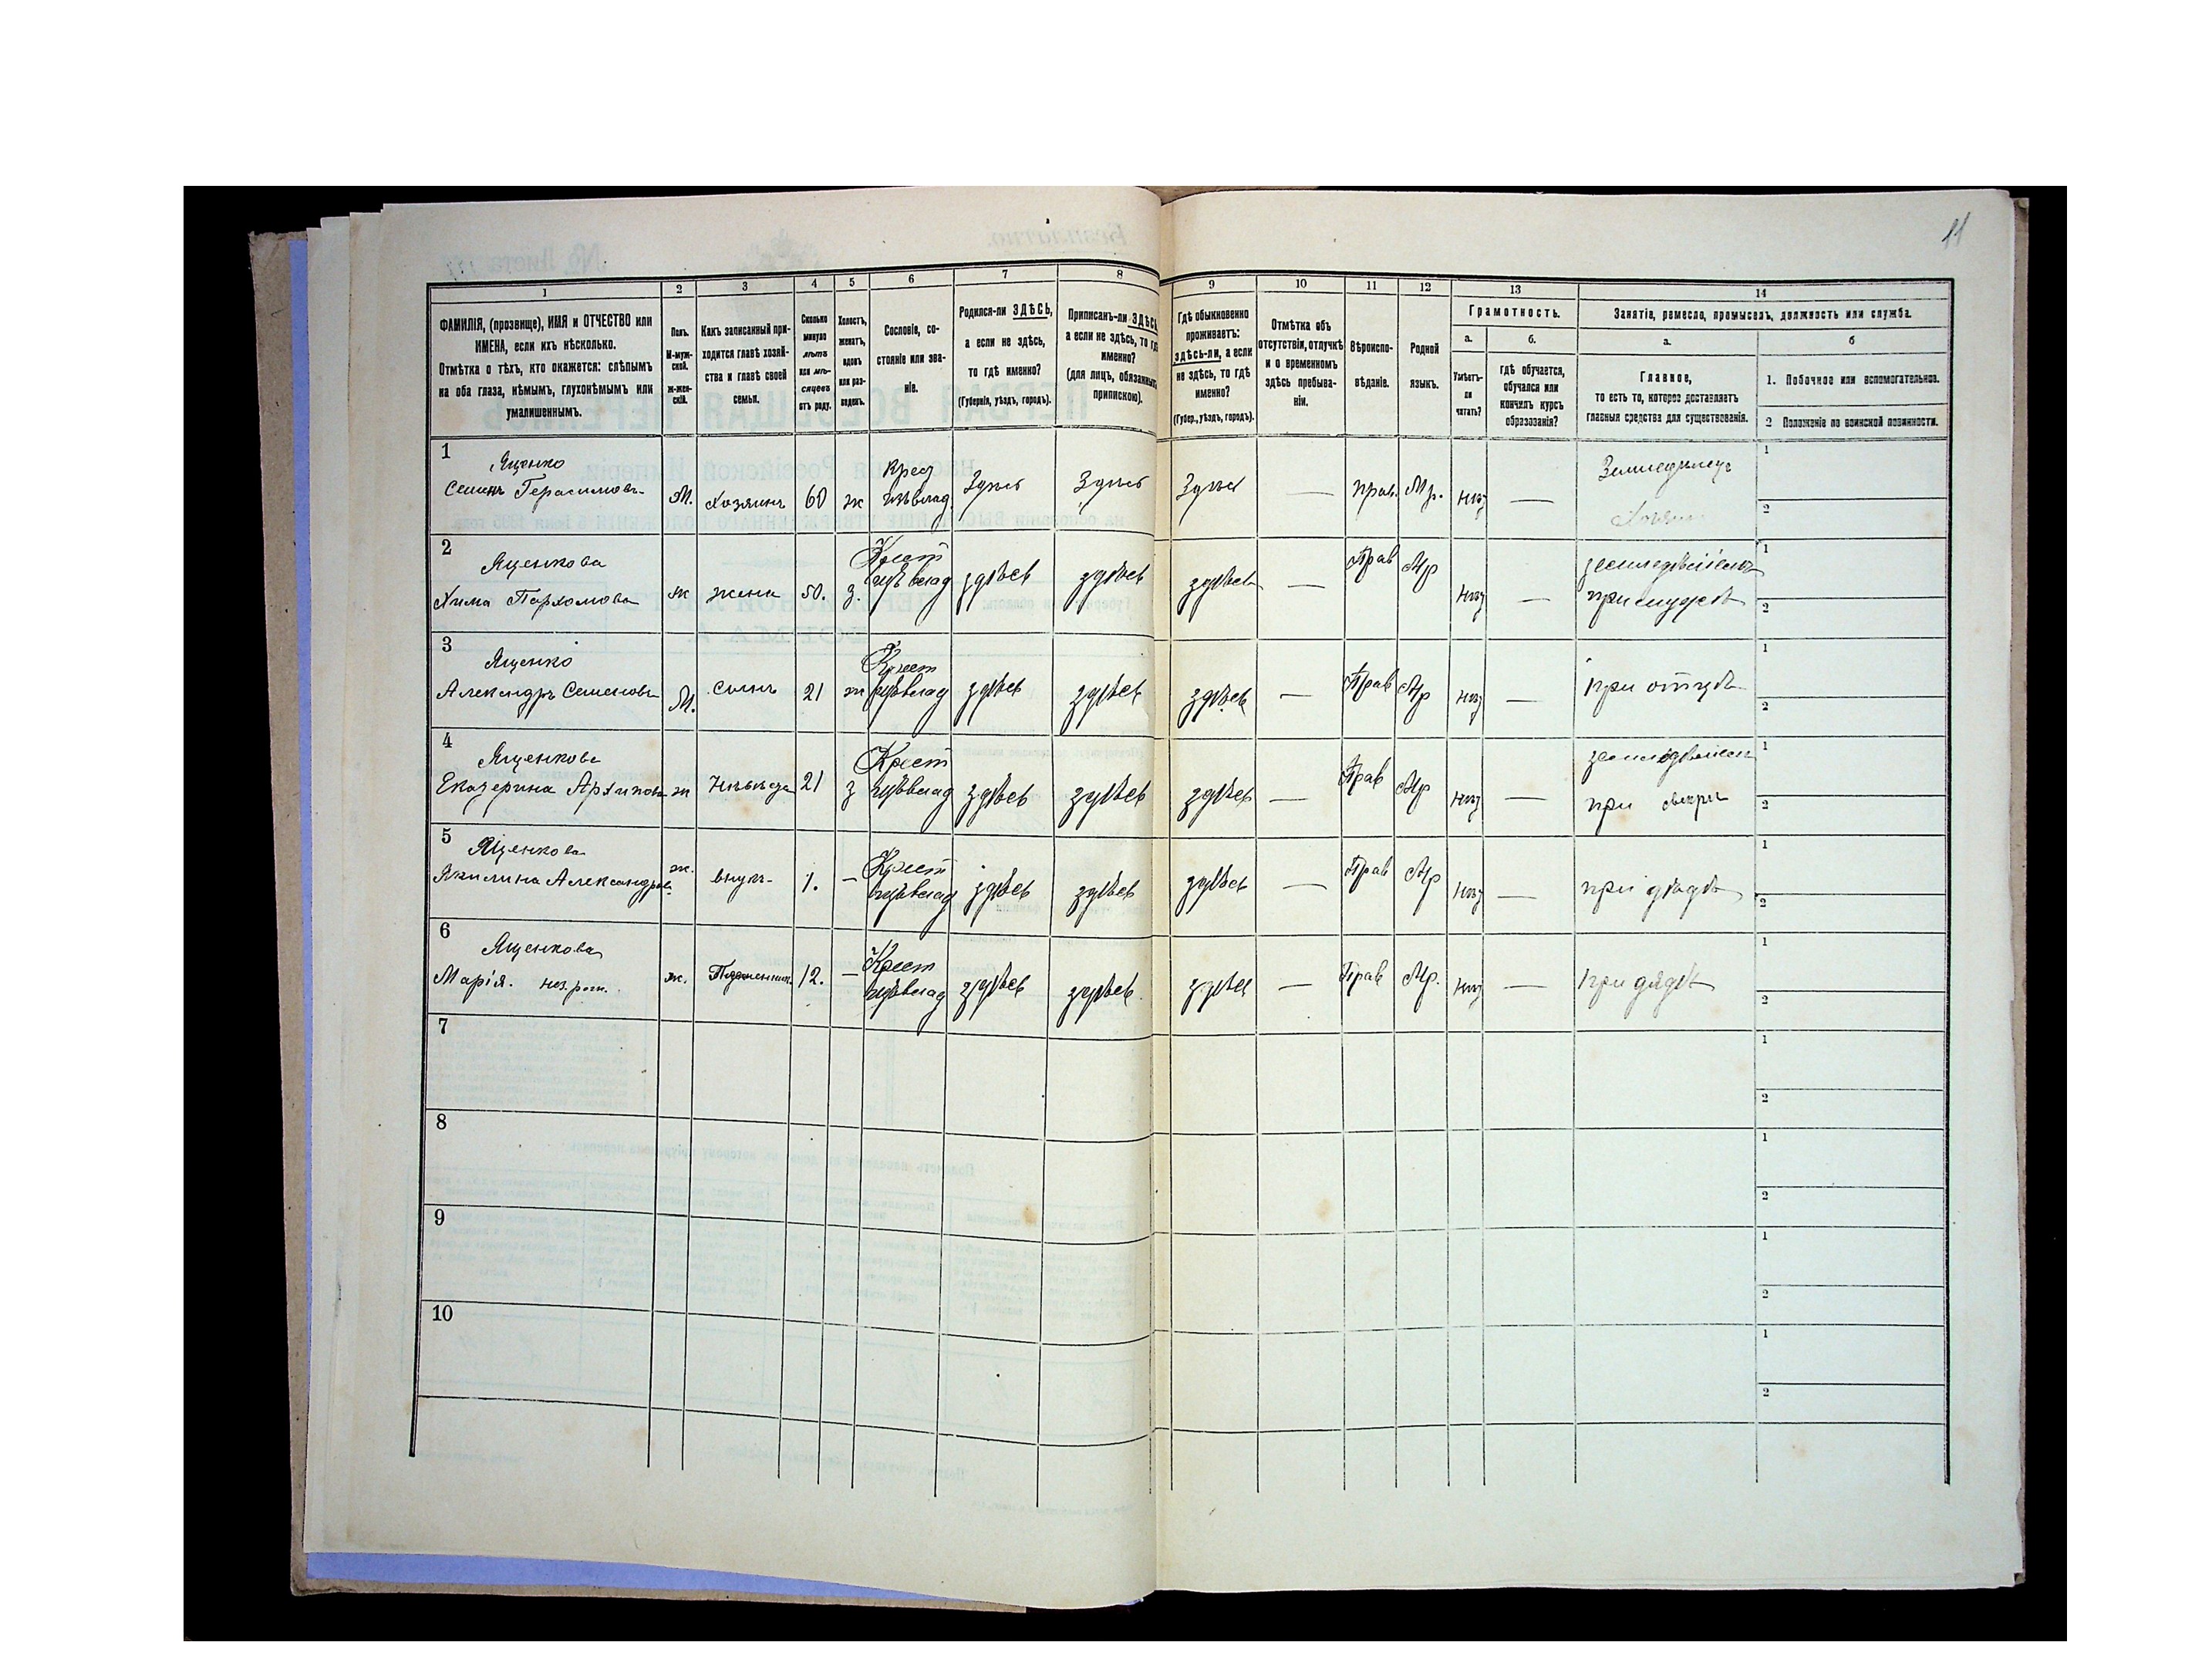 11
1 2 3 4 5 6 7 8 9 10 11 12 13 14
ФАМИЛІЯ, (прозвище), ИМЯ и ОТЧЕСТВО или
ИМЕНА, если ихъ нѣсколько.
Отмѣтка о тѣхъ, кто окажется: слѣпымъ
на оба глаза, нѣмымъ, глухонѣмымъ или
умалишеннымъ.
Полъ.
М-муж-
ской.
Ж-жен-
скій.
Какъ записанный при-
ходится главѣ хозяй-
ства и главѣ своей
семьи.
Сколько
минуло
лѣтъ
или мѣ-
сяцевъ
отъ роду.
Холостъ,
женатъ,
вдовъ
или раз-
веденъ.
Сословіе, со-
стояніе или зва-
ніе.
Родился-ли ЗДѢСЬ,
а если не здѣсь,
то гдѣ именно?
(Губернія, уѣздъ, городъ).
Приписанъ-ли ЗДѢСЬ
а если не здѣсь, то гдѣ
именно?
(для лицъ, обязанныхъ
припискою).
Гдѣ обыкновенно
проживаетъ:
здѣсь-ли, а если
не здѣсь, то гдѣ
именно?
(Губер., уѣздъ, городъ).
Отмѣтка объ
отсутствіи, отлучкѣ
и о временномъ
здѣсь пребыва-
ніи.
Вѣроиспо-
вѣданіе.
Родной
языкъ.
Грамотность.
а. б.
Умѣетъ-
ли
читать?
гдѣ обучается,
обучался или
кончилъ курсъ
образованія?
Занятіе, ремесло, промыселъ, должность или служба.
а. б
Главное,
то есть то, которое доставляетъ
главныя средства для существованія.
1. Побочное или вспомогательное.
2 Положеніе по воинской повинности.
1 Ященко Крест Земледѣлецъ 1
Семенъ Герасимовъ М. Хозяинъ 60 ж Здѣсь Здѣсь Здѣсь — прав. Мр. нѣт —
Хозяинъ 2
2 Ященкова Крест Прав Мр земледѣліемъ 1
Хима Пархомова ж жена 50. з. здѣсь здѣсь здѣсь — нѣт — при мужѣ 2
3 Ященко Крест 1
Александръ Семеновъ М. сынъ 21 ж здѣсь здѣсь здѣсь — Прав Мр нѣт — при отцѣ 2
4 Ященкова Крест земледѣліем 1
Екатерина Архипова ж Невѣстка 21 з здѣсь здѣсь здѣсь — Прав Мр нѣт — при свекрѣ 2
5 Ященкова Крест 1
Акилина Александрова ж. внук- 1. — здѣсь здѣсь здѣсь — Прав Мр нѣт — при дѣдѣ 2
6 Ященкова Крест 1
Марія. ж. 12. — здѣсь здѣсь здѣсь — Прав Мр. нѣт — при дядѣ 2
7 1
2
8 1
2
9 1
2
10 1
2